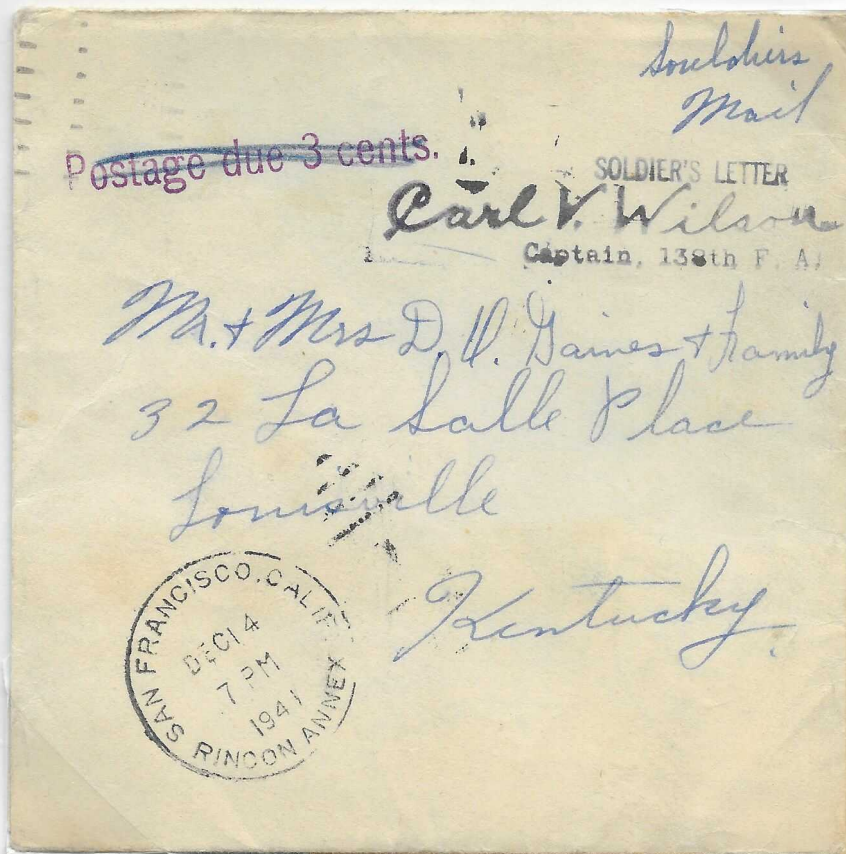 Souldiers
Mail
Postage due 3 cents.
SOLDIER'S LETTER
Carl V. Wilson
Captain, 138th F. A.
Mr. + Mrs D. V. Gaines + Family
32 La Salle Place
Louisville
Kentucky.
SAN FRANCISCO, CALIF.
DEC 14
7 PM
1941
RINCON ANNEX